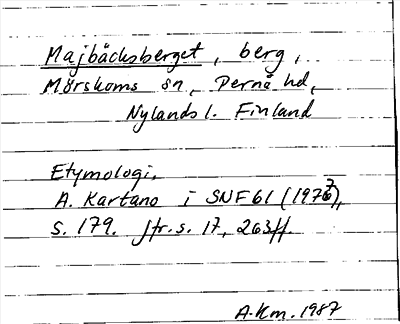 Majbäcksberget, berg,
Mörskoms sn, Pernå hd,
Nylands l. Finland
Etymologi.
A. Kartano i SNF 61 (1976),
s. 179. Jfr. s. 17, 263ff
A.Km. 1987